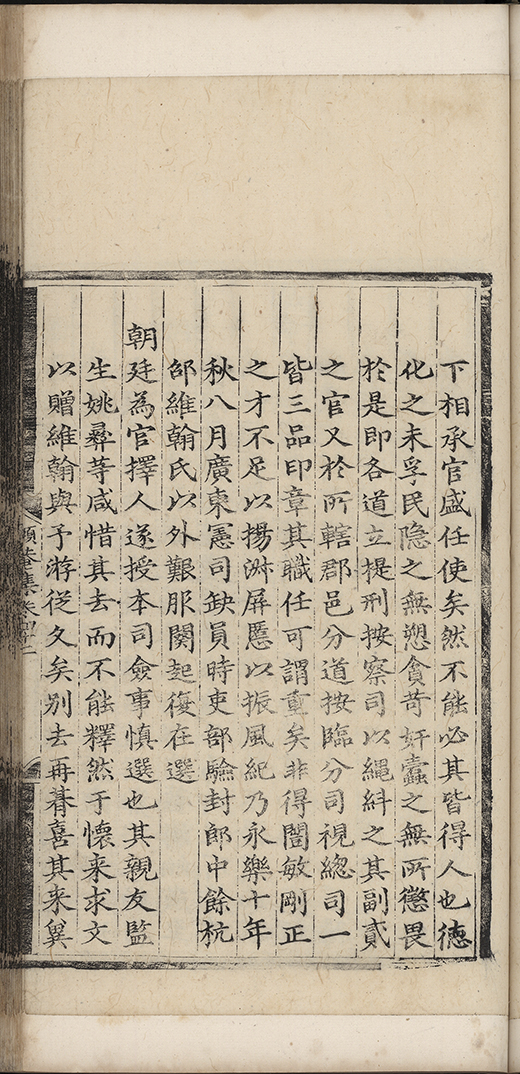 下相承官盛任使矣然不能必其皆得人也德
化之未孚民隐之無愬貪苛奸蠧之無所懲畏
於是即各道立提刑按察司以繩糾之其副貳
之官又於所轄郡邑分道按臨分司視緫司一
皆三品印章其職任可謂重矣非得闓敏剛正
之才不足以揚淑屏慝以振風紀乃永樂十年
秋八月廣東憲司缺員時吏部驗封郎中餘杭
邵維翰氏以外艱服闋起復在選
朝廷為官擇人遂授本司僉事慎選也其親友監
生姚彛等咸惜其去而不能釋然于懷来求文
以贈維翰與予游從久矣别去再朞喜其来兾
頥菴集卷四 十二